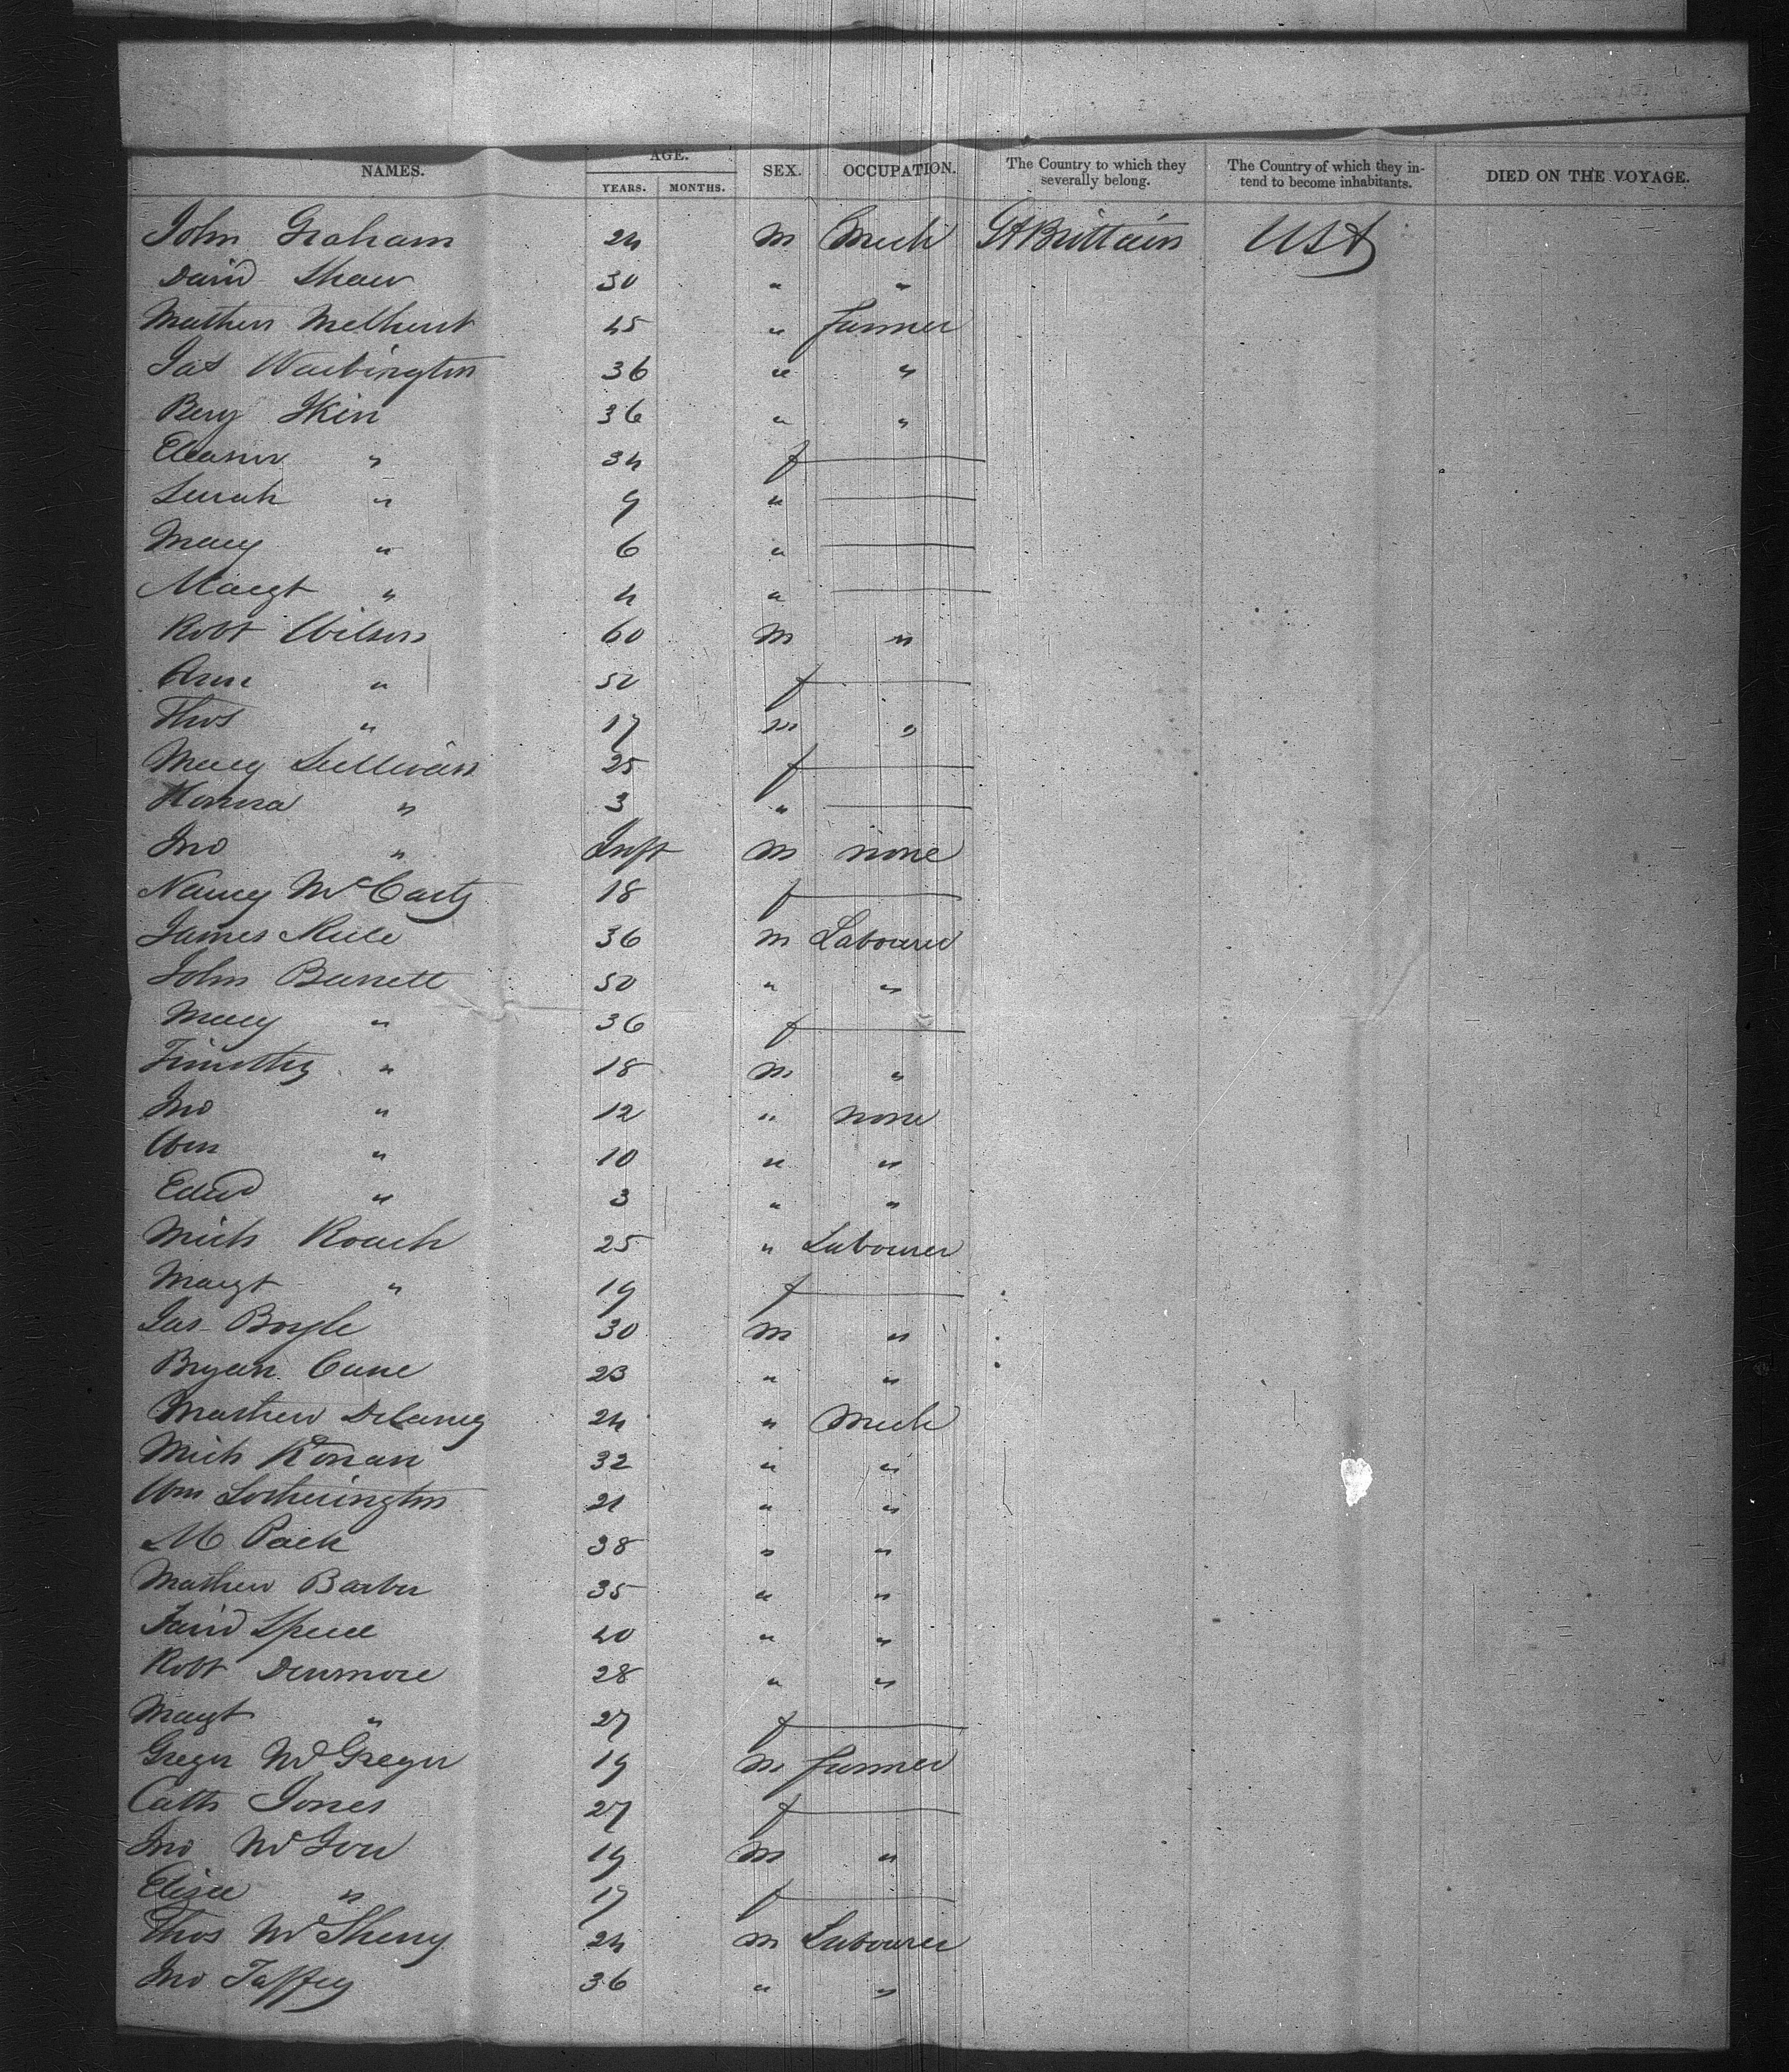 NAMES. AGE. SEX. OCCUPATION. The Country to which they severally belong. The Country of which they intend to become inhabitants. DIED ON THE VOYAGE.
YEARS. MONTHS.
John Graham 24 m Mech Gt Brittain USA
David Shaw 30 " "
Mathew 45 " farmer
Jas Warbington 36 " "
Benj Skin 36 " "
Eleanor " 34 f
Sarah " 9 "
Mary " 6 "
Margt " 4 "
Robt Wilson 60 m "
Ann " 50 f
Thos " 17 m "
Mary Sullivan 25 f
Honora " 3 "
Jno " Inft m none
Nancy McCarty 18 f
James 36 m Labourer
John Barrett 50 " "
Mary " 36 f
Timothy " 18 m "
Jno " 12 " none
Wm " 10 " "
Edwd " 3 " "
Mich Roach 25 " Labourer
Margt " 19 f
Jas Boyle 30 m "
Bryan Cane 23 " "
Mathew Delaney 24 " Mech
Mich Ronan 32 " "
Wm Sotherington 21 " "
M Pack 38 " "
Mathew Barber 35 " "
David Speed 40 " "
Robt Denmore 28 " "
Margt " 27 f
Gregor McGregor 19 m farmer
Cath Jones 27 f
Jno 19 m "
Eliza " 17 f
Thos McSherry 24 m Labourer
Jno Taffey 36 " "